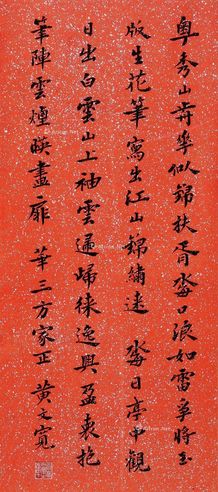 粤秀山似錦扶胥海口浪如雷將玉
版生花筆寫出江山錦繡遠 海日亭中觀
日出白雲山上袖雲歸徠逸興盈衷抱
筆陣雲煙暎畫扉 華三方家正 黄文寬